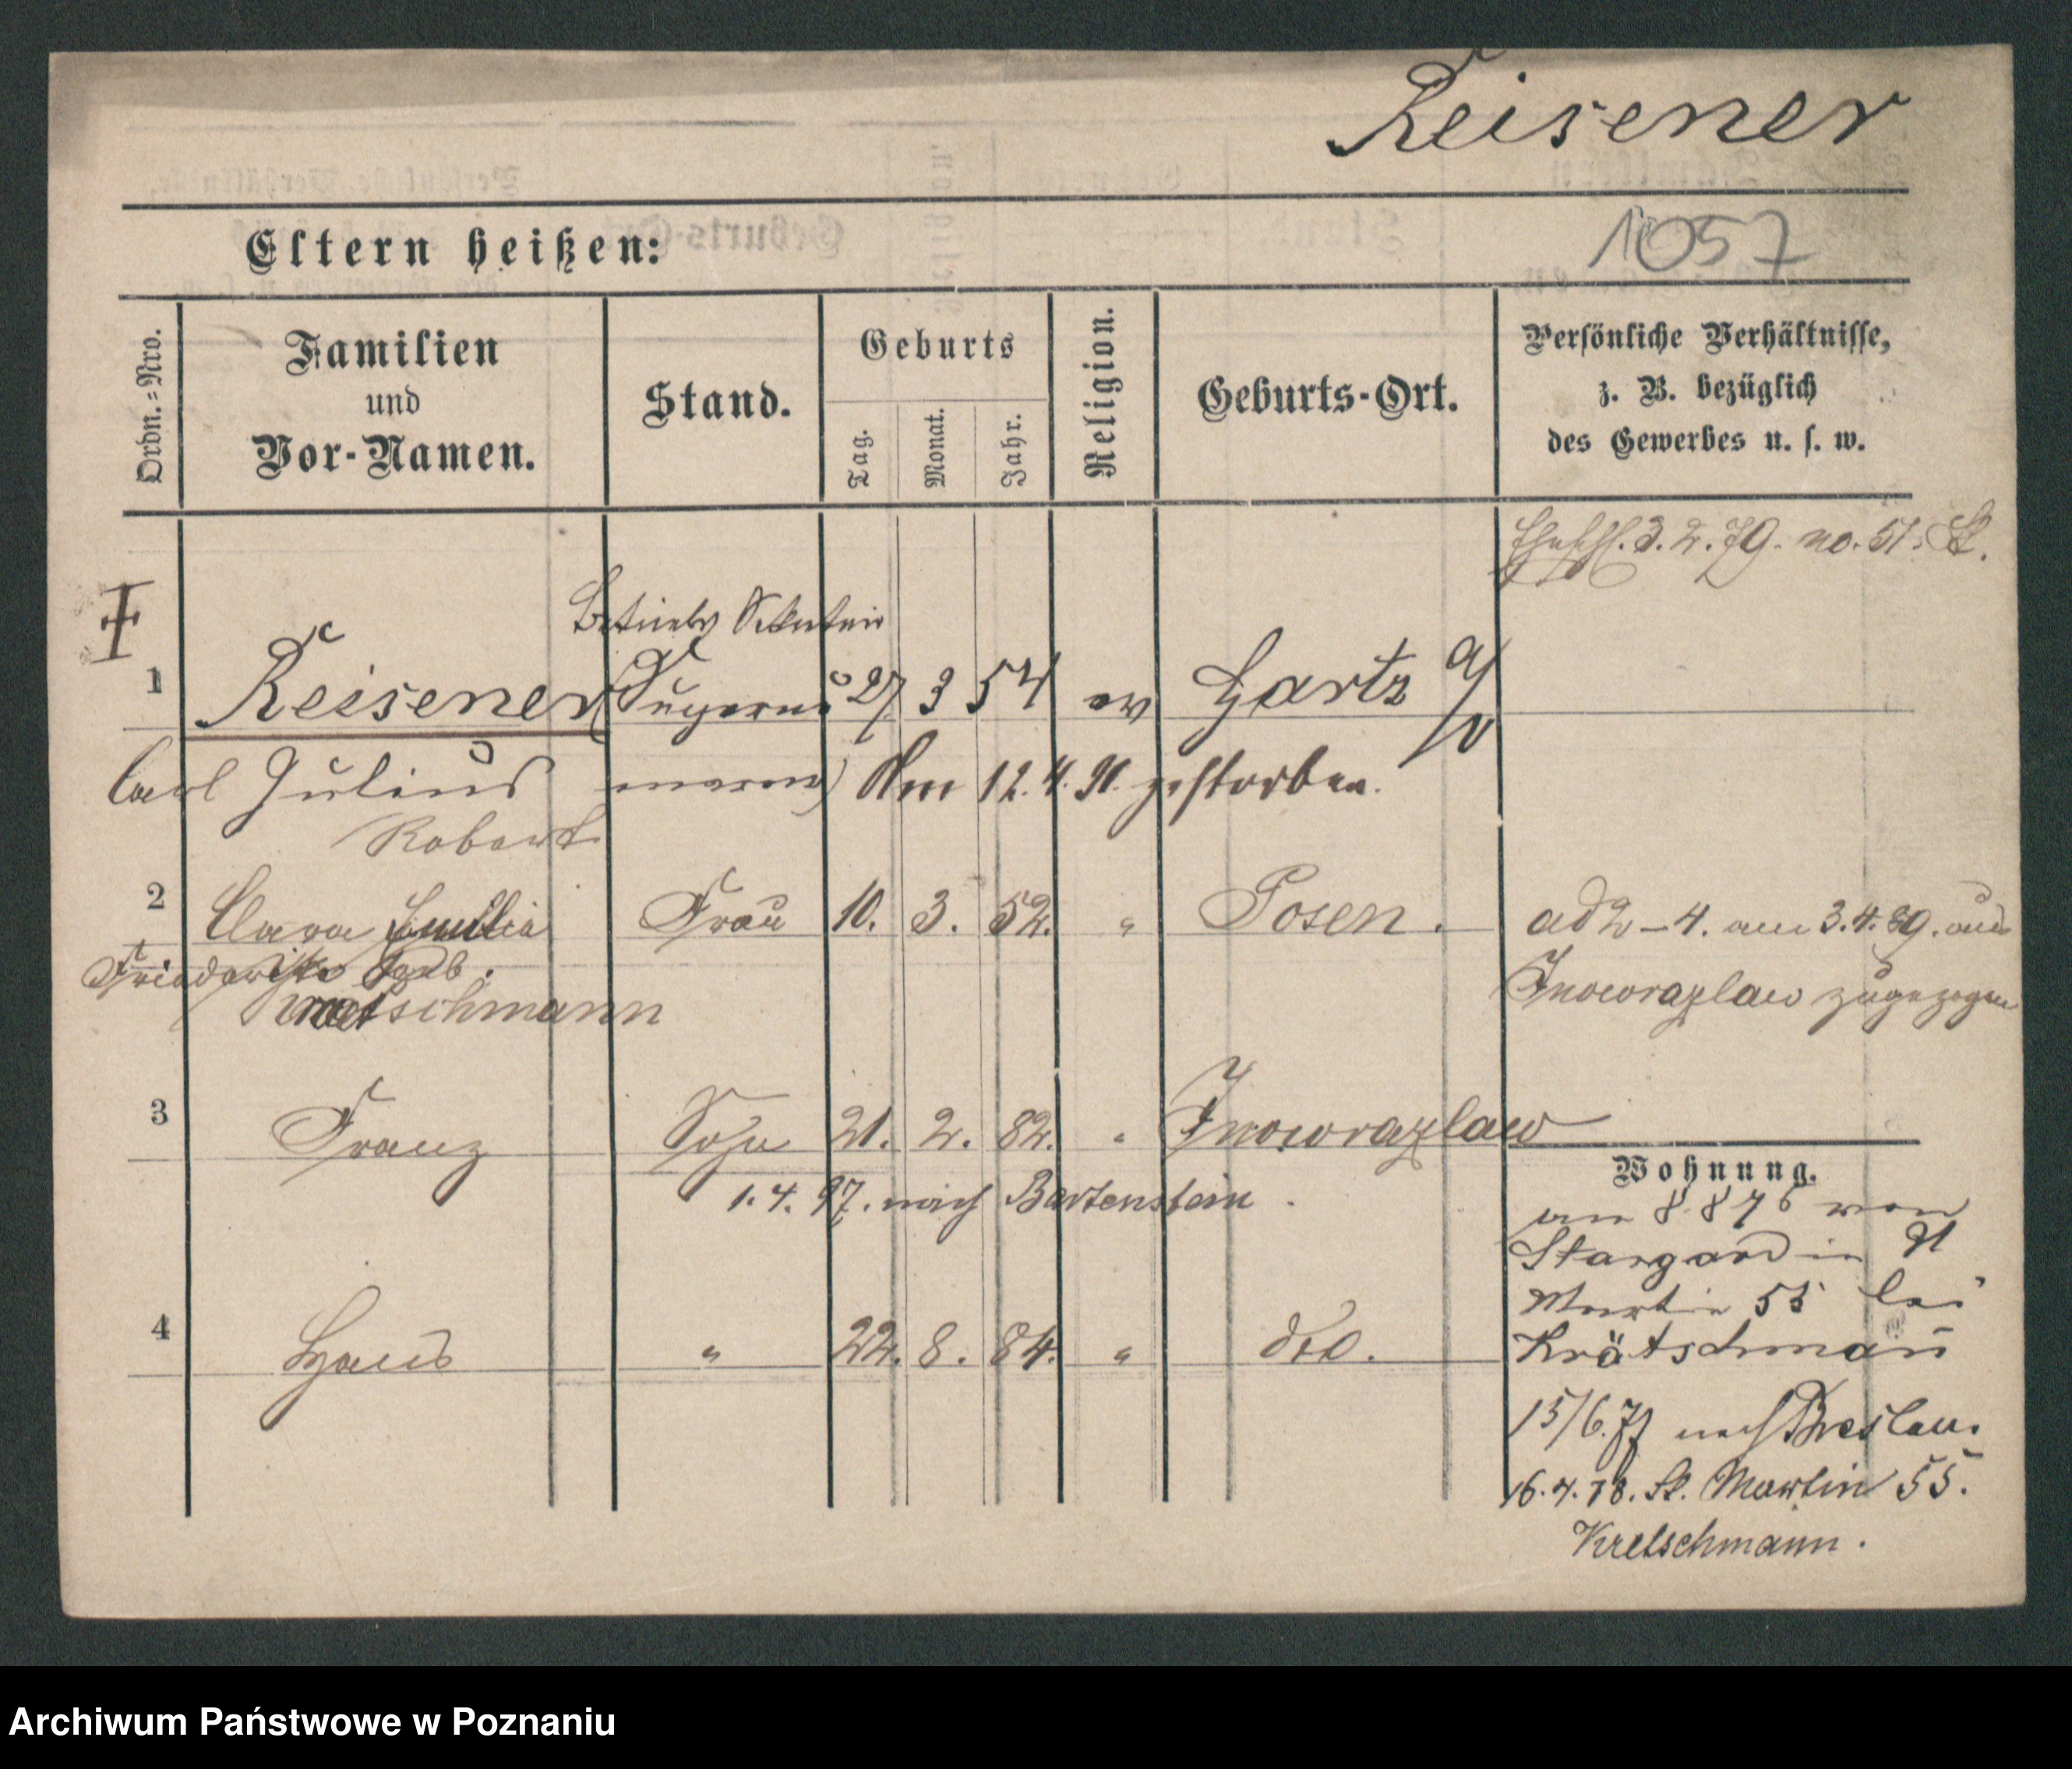 Reisener
1057
Eltern heißen:
Ordn.-Nro.
Familien
und
Vor-Namen.
Stand.
Geburts
Tag.
Monat.
Jahr.
Religion.
Geburts-Ort.
Persönliche Verhältnisse,
z. B. bezüglich
des Gewerbes u. s. w.
3.2.79. no. 51. St.
Betriebs Sekretair
1 Reisener 27 3 54 ev Gartz a/O
Carl Julius Am 12.4.91. gestorben.
Robert
2 Clara Emilie Frau 10. 3. 52. " Posen.
Friederike geb.
Kretschmann
ad 2-4. am 3.4.89. aus
Inowrazlaw zugezogen
3 Franz Sohn 21. 2. 82. " Inowrazlaw
1.4.97. nach Bartenstein.
4 Hans " 22. 8. 84. " dto.
Wohnung.
am 8 8 76 von
Stargard in St
Martin 55 bei
Krätschman̄
15/6.77 nach Breslau.
16.4.78. St. Martin 55.
Kretschmann.
Archiwum Państwowe w Poznaniu